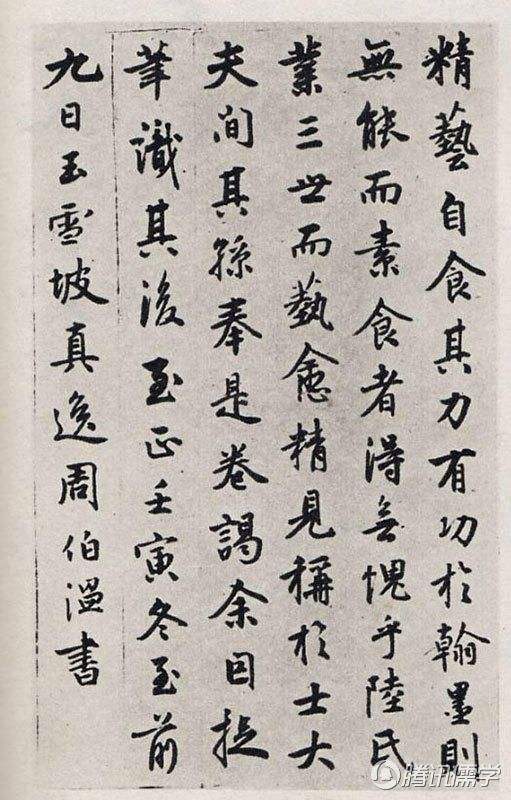 精藝自食其力有功於翰墨則
無能而素食者得無愧乎陸氏
業三世而藝愈精見稱於士大
夫間其孫奉是卷謁余因捉
筆識其後至正壬寅冬至前
九日玉雪坡真逸周伯溫書
腾讯儒学